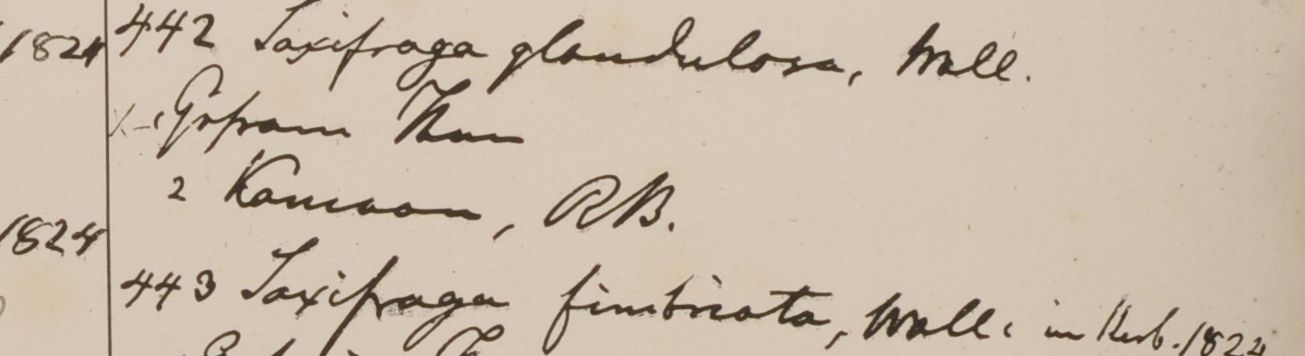 1824 442 Saxifraga glandulosa, Wall.
Gossain Than
2 Kamaon, RB.
1824
443 Saxifraga fimbriata, Wall: in Herb. 1824